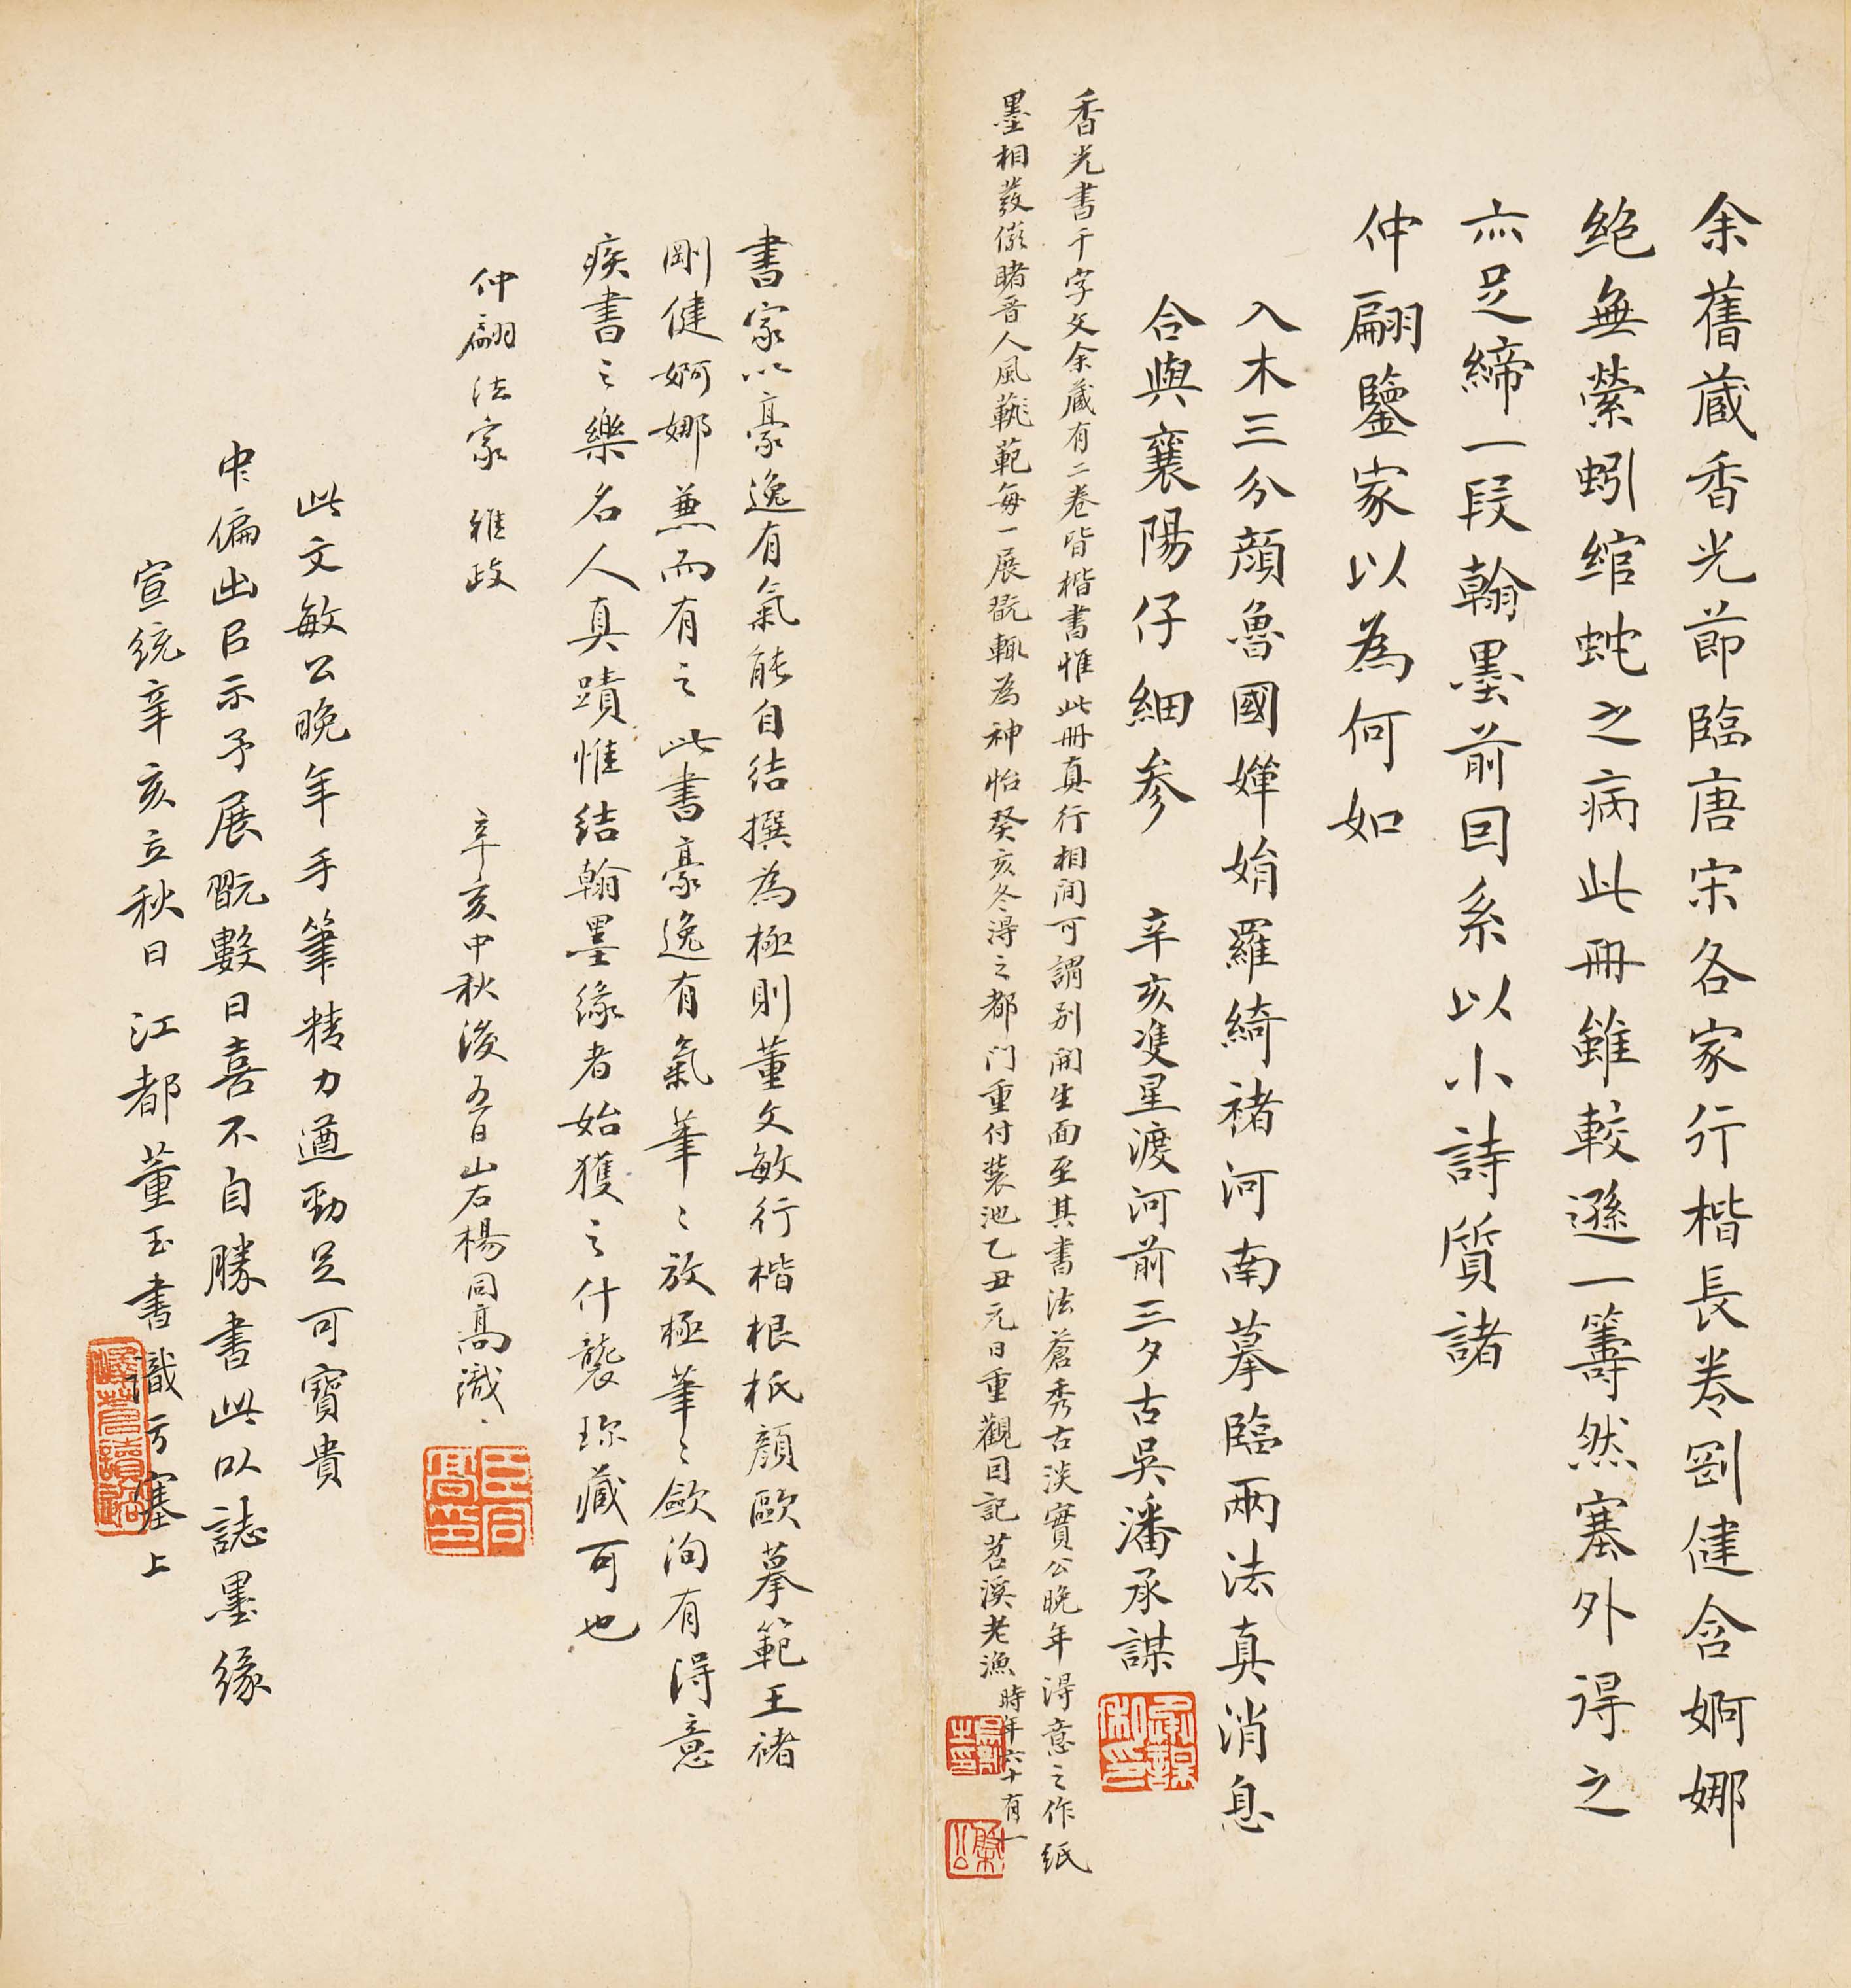 余舊蔵香光節臨唐宋各家行楷長卷剛健含婀娜
絶無縈蚓綰蛇之病此冊雖較遜一籌然塞外得之
亦足締一段翰墨前因系以小詩質諸
仲翩鑒家以為何如
入木三分顔魯國嬋娟羅綺褚河南摹臨兩法真消息
合與襄陽仔細参 辛亥雙星渡河前三夕古吳潘承謀
香光書千字文余蔵有二卷皆楷書惟此冊真行相間可謂别開生面至其書法蒼秀古淡實公晚年得意之作紙
墨相發儼睹晋人風範每一展翫輒為神怡癸亥冬得之都门重付裝池乙丑元日重觀因記苕溪老漁時年六十有一
書家以豪逸有氣能自結撰為極則董文敏行楷根柢顔歐摹範王褚
剛健婀娜兼而有之此書豪逸有氣筆〻放極筆〻歛洵有得意
疾書之樂名人真蹟惟結翰墨緣者始獲之什襲珎藏可也
仲翩法家 雅政
辛亥中秋後五日山右楊同高識
此文敏公晚年手筆精力遒勁足可寶貴
中偏出㠯示予展翫數日喜不自勝書此以誌墨緣
宣統辛亥立秋日 江都董玉書識于塞上